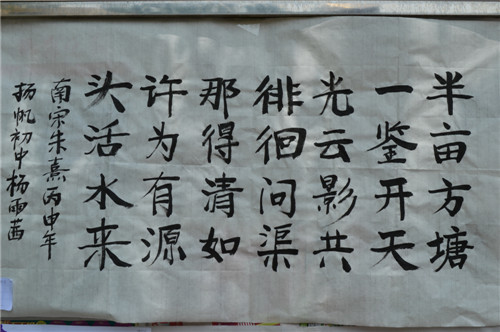 半亩方塘
一鉴开天
光云影共
徘徊问渠
那得清如
许为有源
头活水来
南宋朱熹丙申年
扬帆初中杨雨茜